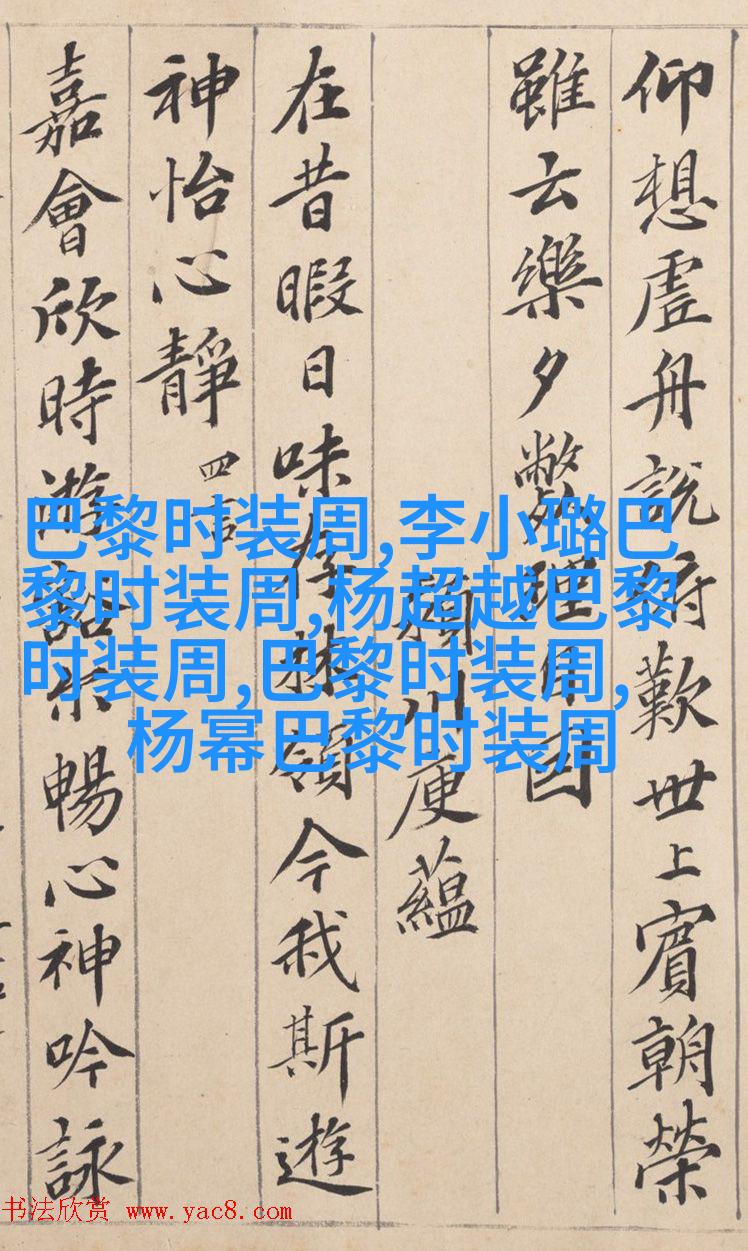 仰想虛舟說俯歎世上賓朝榮
雖云樂夕斃理自因
潁川庾蘊
在昔暇日味存林嶺今我斯遊
神怡心靜 四言
嘉會欣時遊豁尒暢心神吟詠
巴黎时装周,李小璐巴
黎时装周,杨超越巴黎
时装周,巴黎时装周,
杨幂巴黎时装周
书法欣赏 www.yac8.com